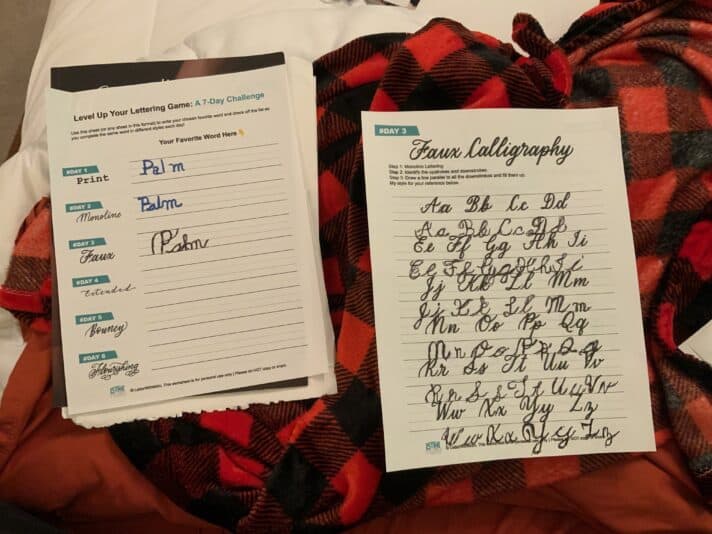 Level Up Your Lettering Game: A 7-Day Challenge
Use this sheet (or any sheet in this format) to write your chosen favorite word and check off the list as
you complete the same word in different styles each day!
Your Favorite Word Here
#DAY 1
Print
Palm
#DAY 2
Monoline
Palm
#DAY 3
Faux
Palm
#DAY 4
Extended
#DAY 5
Bouncy
#DAY 6
Flourishing
This worksheet is for personal use only | Please do NOT copy or share.
#DAY 3
Faux Calligraphy
Step 1: Monoline Lettering
Step 2: Identify the upstrokes and downstrokes.
Step 3: Draw a line parallel to all the downstrokes and fill them up.
My style for your reference below.
Aa Bb Cc Dd
Aa Bb Cc Dd
Ee Ff Gg Hh Ii
Ee Ff Gg Hh Ii
Jj Kk Ll Mm
Jj Kk Ll Mm
Nn Oo Pp Qq
Nn Oo Pp Qq
Rr Ss Tt Uu Vv
Rr Ss Tt Uu Vv
Ww Xx Yy Zz
Ww Xx Yy Zz